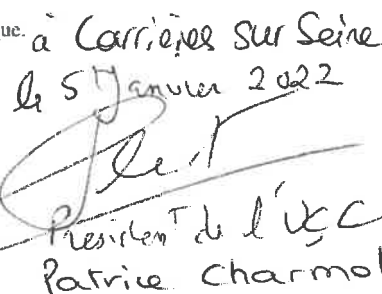 ue. à Carrières sur Seine
le 5 Janvier 2022
Président de l'UCC
Patrice Charmol